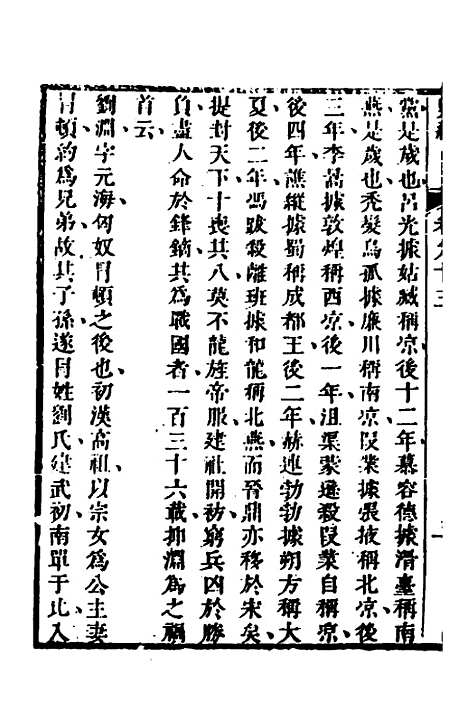 黨是歲也呂光據姑臧稱凉後十二年慕容德據滑臺稱南
燕是歲也禿髮烏孤據廉川稱南凉段業據張掖稱北凉後
三年李暠據敦煌稱西凉後一年沮渠蒙遜殺段業自稱凉
後四年譙縱據蜀稱成都王後二年赫連勃勃據朔方稱大
夏後二年馮跋殺離班據和龍稱北燕而晉鼎亦移於宋矣
提封天下十喪其八莫不龍旌帝服建社開祊窮兵凶於勝
負盡人命於鋒鏑其爲戰國者一百三十六載抑淵爲之禍
首云
劉淵字元海匈奴冒頓之後也初漢高祖以宗女爲公主妻
冒頓約爲兄弟故其子孫遂冒姓劉氏建武初南單于比入